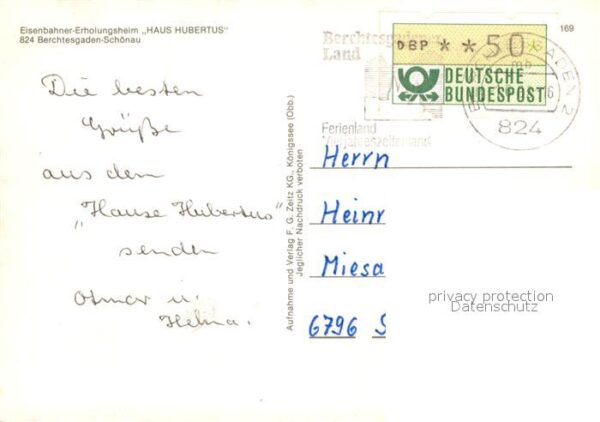 Eisenbahner-Erholungsheim „HAUS HUBERTUS"
824 Berchtesgaden-Schönau
Die besten
Grüße
aus dem
„Hause Hubertus"
senden
Otmar u.
Helma.
Aufnahme und Verlag F. G. Zeitz KG., Königssee (Obb.)
Jeglicher Nachdruck verboten
169
Berchtesgadener
Land
DBP * * 50
DEUTSCHE
BUNDESPOST
824
Ferienland
Herrn
Heinr
Miesa
6796 S
privacy protection
Datenschutz